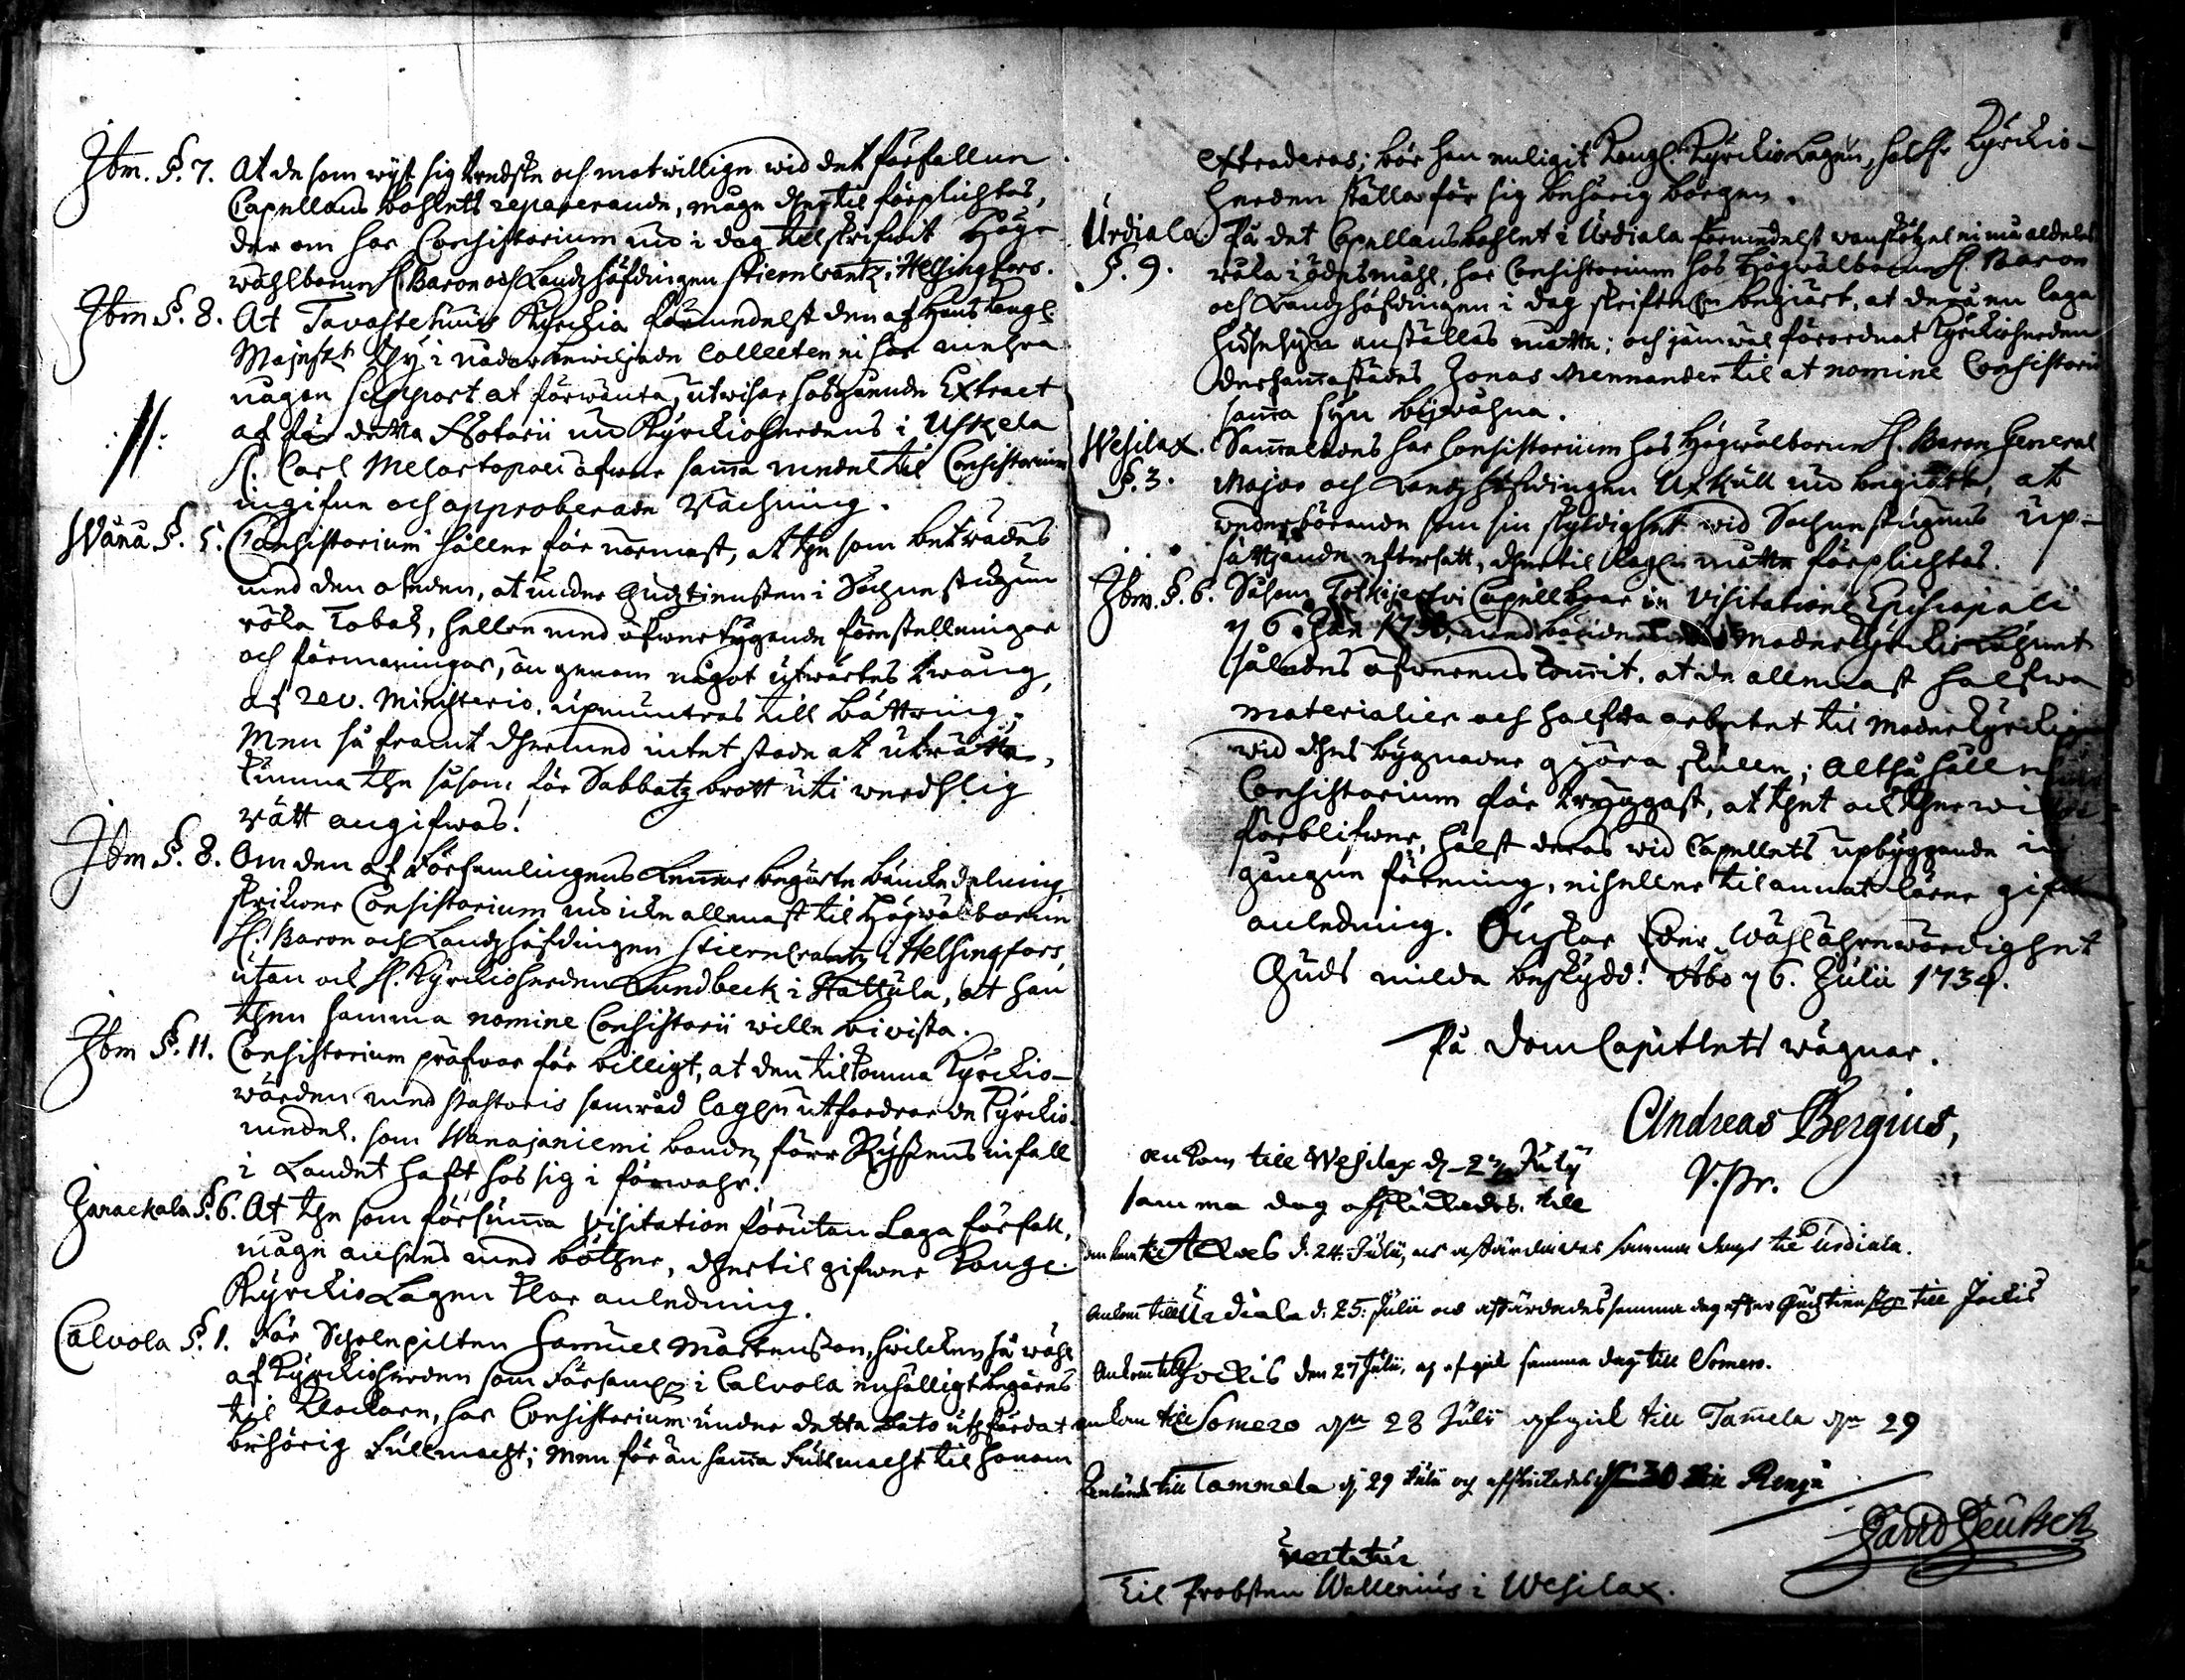 Ibm. §. 7. At de som wyst sig tredske och motwillige wid det förfallne
Capellans bohlets reparerande, måge thertil förplichtas,
der om har Consistorium nu i dag tilskrifwit Hög-
wählborne H. Baron och Landzhöfdingen Stierncrantz i Helsingfors.
Ibm §. 8. At Tavastehuus Kyrckia förmedelst den af Hans Kongl.
Majestt thy i nåder bewiljade Collecten ei har mehra
någon support at förwänta, utwisar hosgående Extract
af för detta Notarii nu Kyrckioherdens i Uskela
H. Carl Melartopæi öfwer samma medel til Consistorium
ingifne och approberade Räckning.
Wånå §. 5. Consistorium håller för närmast, at the som beträdes
med den oseden, at under Gudztiensten i Sochnestugun
röka Tobak, hellre med öfwertygande föreställningar
och förmaningar, än genom något utwärtes twång,
af rev. Ministerio, upmuntras till bättring;
Men så framt thermed intet stode at uträtta,
kunna the såsom för Sabbatz brott uti werdslig
rätt angifwas.
Ibm §. 8. Om den af Församlingens Lemmar begärte bänckedelning
skrifwer Consistorium nu icke allenast til Högwälborne
H. Baron och Landzhöfdingen Stierncrantz i Helsingfors,
utan ock H. Kyrckioherden Lundbeck i Hattula, at han
then samma nomine Consistorii wille biwista.
Ibm §. 11. Consistorium pröfwar för billigt, at den tilkomma Kyrckio-
wärden med Pastoris samråd lagl. utfordrar de Kyrckio-
medel, som Wanajaniemi bonde, förr Ryssens infall
i Landet haft hos sig i förwahr.
Janackala §. 6. At the som försumma Visitation förutan Laga förfall,
måge anses med böther, thertil gifwer Kongl.
Kyrckio Lagen klar anledning.
Calvola §. 1. För Scholepilten Samuel Mårtensson, hwilcken så wähl
af Kyrckioherden som Församl. i Calvola enhälligt begäres
til Klockare, har Consistorium under detta dato utfärdat
behörig Fullmacht; Men för än samma Fullmacht til honom
extraderas; bör han enligit Kongl. Kyrckio Lagen, hos H. Kyrckio-
herden ställa för sig behörig borgen.
Urdiala §. 9. På det Capellansbohlet i Urdiala förmedelst wanskötzel ei må aldeles
råka i ödesmåhl, har Consistorium hos Högwälborne H. Baron
och Landzhöfdingen i dag skriftel. begiärt, at derå en laga
husesyn anställas måtte; och jämwäl förordnat Kyrckioherden
dersammastädes Jonas Mennander til at nomine Consistorii
samma syn biwåhna.
Wesilax. §. 3. Sammaledes har Consistorium hos Högwälborne H. Baron General
Major och Landzhöfdingen Uxkull nu begiärt, at
wederbörande som sin skyldighet wid Sochnestugans up-
sättjande eftersatt, thertil lagl. måtte förplichtas.
Ibm. §. 6. Såsom Tottijerfwi Capellboar in Visitatione Episcopali
Moderkyrckio
således öfwerens kommit, at de allenast halfwa
materialier och halfwa arbetet til Moderkyrckian
wid thes bygnader giöra skulle; Altså håller
Consistorium för tryggast, at thet ock ther wi
förblifwer, hälst deras wid Capellets upbyggande in
gångne förening, ei heller til annat lärer gifwa
anledning. Önskar Eder Wählährewördighet
Guds milda beskydd! Åbo d 6. Julii 1734.
På DomCapitlets wägnar.
Andreas Bergius,
V. Pr.
ankom till Wesilax d. 23 July
samma dag afskickades till
Ankom til Ackas d. 24. Julii, och afsändes samma dag til Urdiala.
Ankom till Urdiala d: 25: Julii och afsändes samma dag efter Gudztiensten till Jockis
Ankom till Jockis den 27 Julii, och afgick samma dag till Somero.
ankom till Somero den 28 Julii afgick till Tamela den 29
till Tammela d. 29 Julii och afskickades d 30 till Rengå
David Deutsch
vertatur
Til Probsten Wallenius i Wesilax.